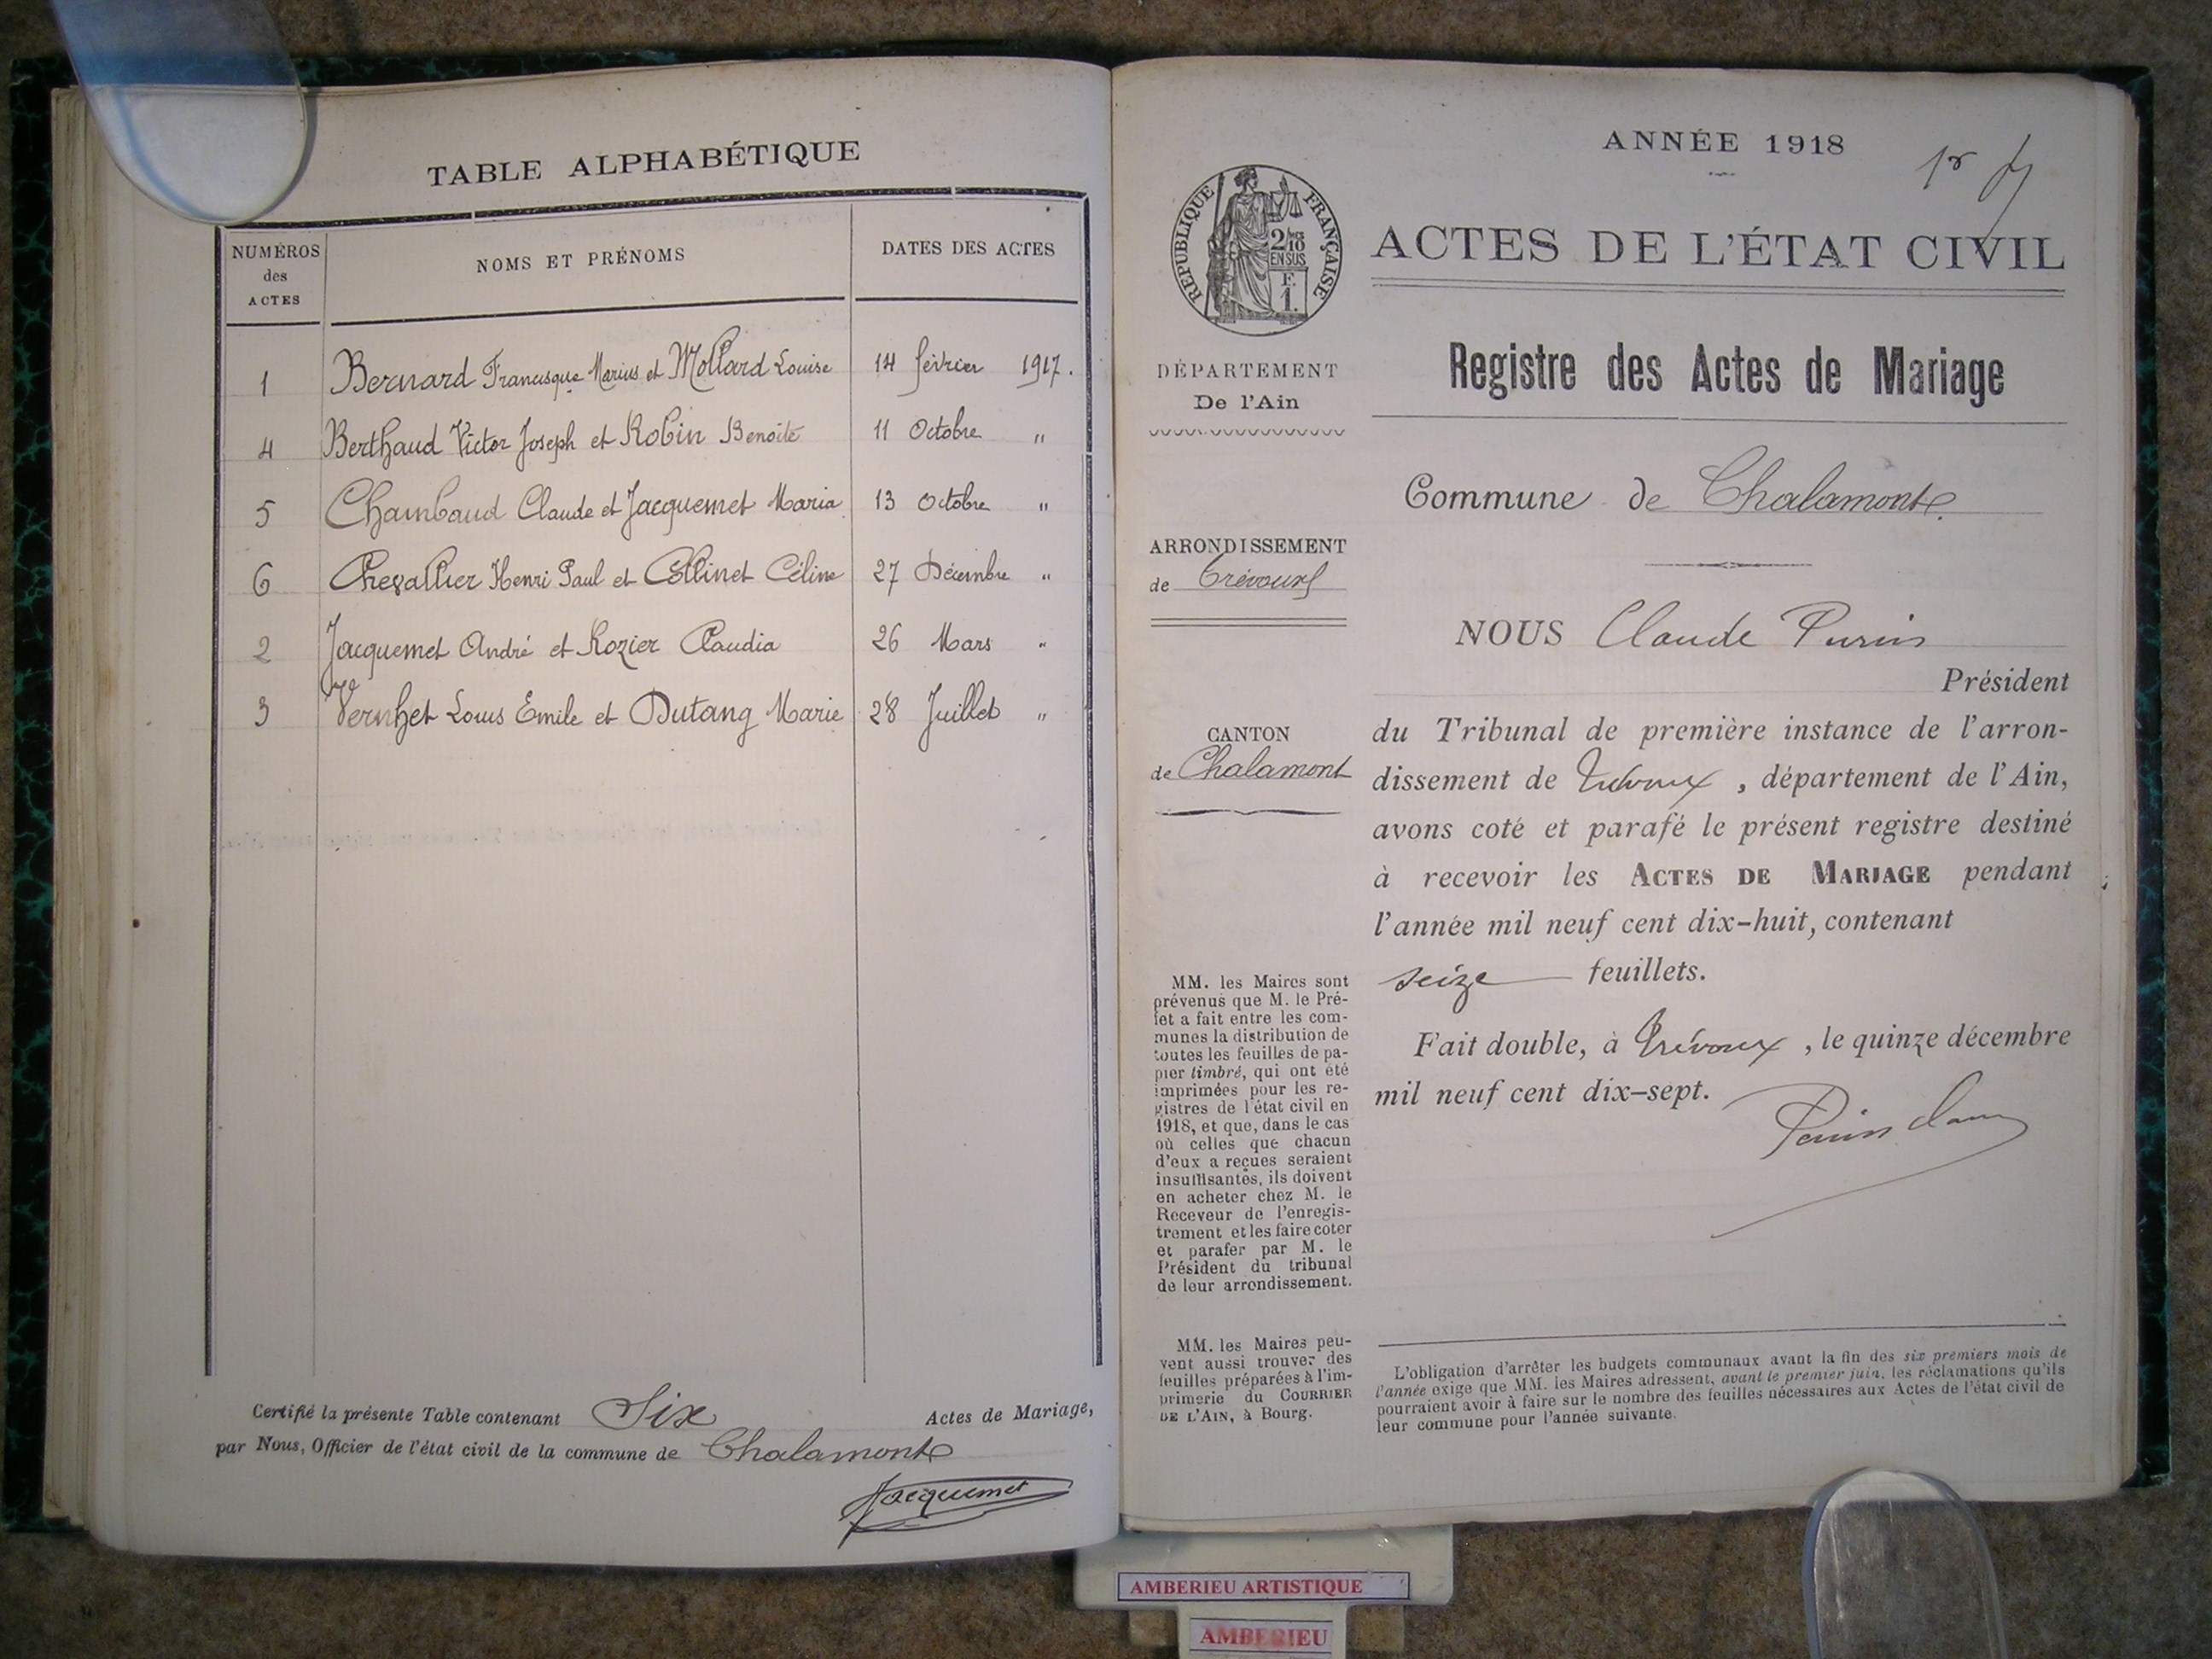 TABLE ALPHABÉTIQUE
NUMÉROS des ACTES
NOMS ET PRÉNOMS
DATES DES ACTES
1 Bernard Francisque Marius et Mollard Louise 14 février 1917.
4 Berthaud Victor Joseph et Robin Benoite 11 Octobre "
5 Chambaud Claude et Jacquemet Maria 13 Octobre "
6 Chevallier Henri Paul et Collinet Céline 27 Décembre "
2 Jacquemet André et Rozier Claudia 26 Mars "
3 Vernhet Louis Emile et Dutang Marie 28 Juillet "
Certifié la présente Table contenant Six Actes de Mariage,
par Nous, Officier de l'état civil de la commune de Chalamont
Jacquemet
ANNÉE 1918
1r
RÉPUBLIQUE FRANÇAISE
2/10
EN SUS
F.
1.
ACTES DE L'ÉTAT CIVIL
DÉPARTEMENT
De l'Ain
Registre des Actes de Mariage
Commune de Chalamont
ARRONDISSEMENT
de Trévoux
NOUS Claude
Président
CANTON
de Chalamont
du Tribunal de première instance de l'arron-
dissement de Trévoux, département de l'Ain,
avons coté et parafé le présent registre destiné
à recevoir les ACTES DE MARIAGE pendant
l'année mil neuf cent dix-huit, contenant
seize feuillets.
Fait double, à Trévoux, le quinze décembre
mil neuf cent dix-sept.
MM. les Maires sont
prévenus que M. le Pré-
fet a fait entre les com-
munes la distribution de
toutes les feuilles de pa-
pier timbré, qui ont été
imprimées pour les re-
gistres de l'état civil en
1918, et que, dans le cas
où celles que chacun
d'eux a reçues seraient
insuffisantes, ils doivent
en acheter chez M. le
Receveur de l'enregis-
trement et les faire coter
et parafer par M. le
Président du tribunal
de leur arrondissement.
MM. les Maires peu-
vent aussi trouver des
feuilles préparées à l'im-
primerie du COURRIER
DE L'AIN, à Bourg.
L'obligation d'arrêter les budgets communaux avant la fin des six premiers mois de
l'année exige que MM. les Maires adressent, avant le premier juin, les réclamations qu'ils
pourraient avoir à faire sur le nombre des feuilles nécessaires aux Actes de l'état civil de
leur commune pour l'année suivante.
AMBERIEU ARTISTIQUE
AMBERIEU